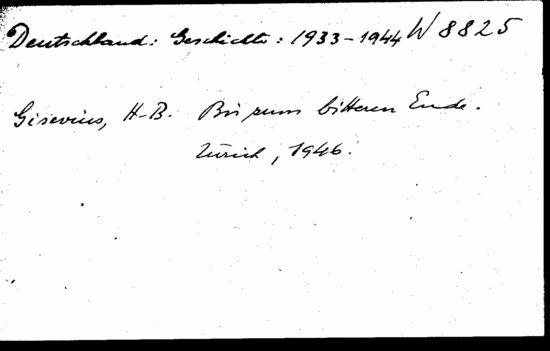 Deutschland: Geschichte: 1933-1944 W 8825
Gisevius, H-B. Bis zum bitteren Ende.
Zürich, 1946.